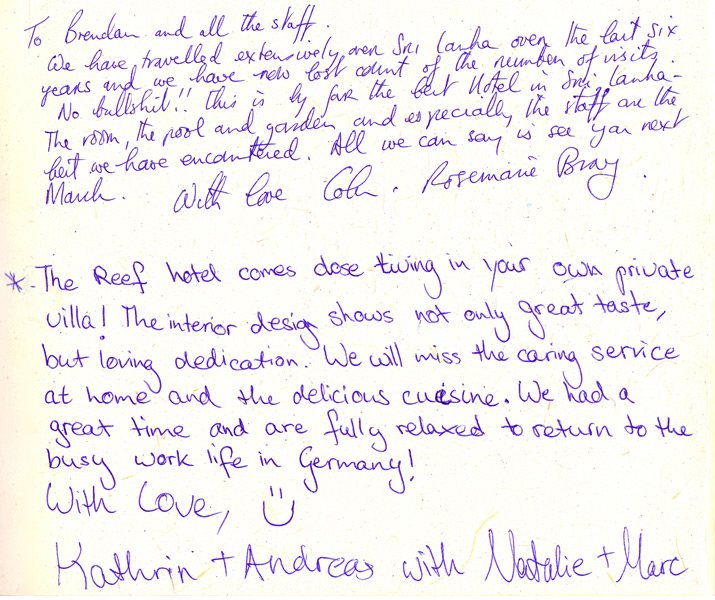 To Brendan and all the staff.
We have travelled extensively over Sri Lanka over the last six
years and we have now lost count of the number of visits.
No bullshit!! This is by far the best Hotel in Sri Lanka-
The room, the pool and garden and especially the staff are the
best we have encountered. All we can say is see you next
March. With love Colin. Rosemarie Bray.
*-The Reef hotel comes close living in your own private
villa! The interior design shows not only great taste,
but loving dedication. We will miss the caring service
at home and the delicious cuisine. We had a
great time and are fully relaxed to return to the
busy work life in Germany!
With Love, :)
Kathrin + Andreas with Natalie + Marc